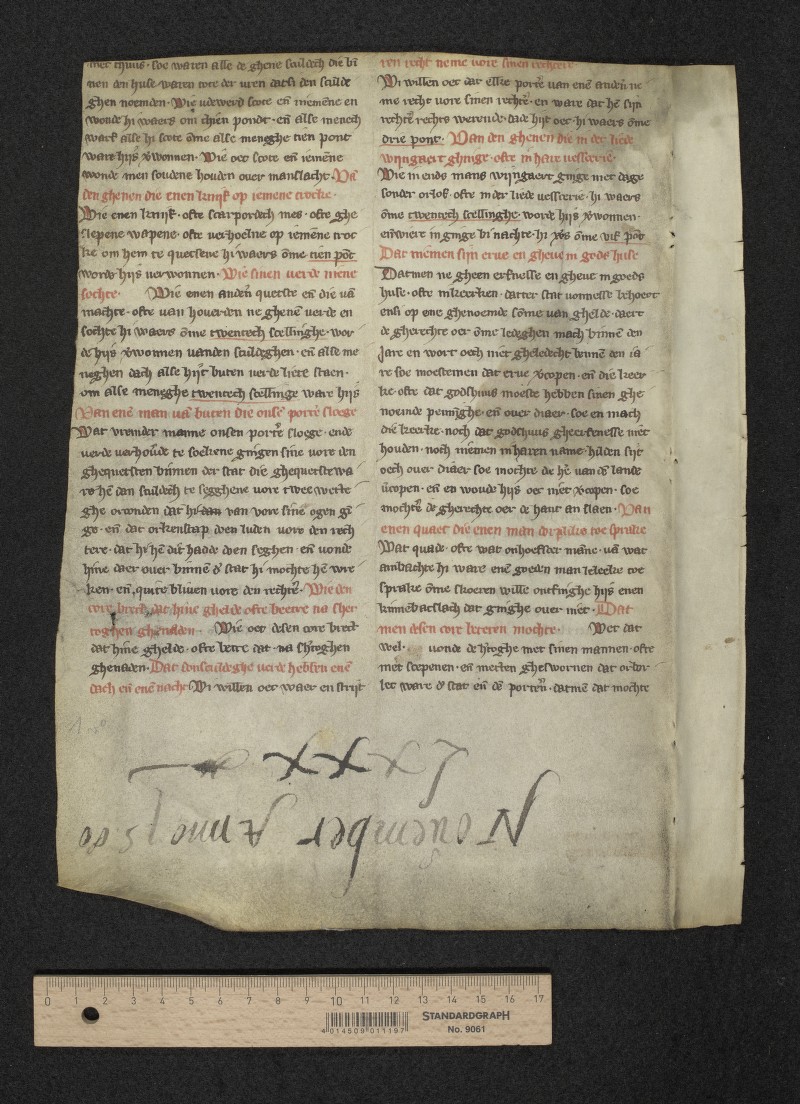 met thuus · soe waren alle de ghene sculdech die bī
nen den huse waren tote der uren datsi den sculde
ghen noemden · Wie udewerd scote en̄ niemēne en
wonde hi waers om thien pondt · en̄ alse menech
warf alse hi scote ōme alse meneghe tien pont
ware hijs v̄wonnen · Wie oec scote en̄ iemēne
wonde men soudene houden over manslacht · Vā
den ghenen die enen knijf op iemene trocke ·
Wie enen knijf · ofte scarpordech mes · ofte ghe
slepene wapene · ofte verhoelne op iemēne troc
ke om hem te quetsene hi waers ōme tien pōt
wordes hijs verwonnen · Wie sinen verde niene
sochte · Wie enen anderē quetste en̄ die vā
machte · ofte van houerden ne ghenē verde en
sochte hi waers ōme twentech scellinghe · wor
de hijs v̄wonnen vanden sculdeghen · en̄ alse me
neghen dach alse hijt buten verde liete staen ·
om alse meneghe twentech scellinge ware hijs
Van enē man vā buten die onse portē sloege
Wat vremder manne onsen portē sloege · ende
verde verhoūde te soekene gingen sine vore den
ghequetsten binnen der stat die ghequetste wa
re hē dan sculdech te segghene vore twee wette
ghe oronden dat hi dan van vore sine ogen gī
ge · en̄ dat orkenscap doen luden vore den rech
tere · dat hi hē die hadde doen segghen · en̄ vonde
hine daer over binnē dr stat hi mochte hē wre
ken · en̄ quite bliven vore den rechtē · Wie den
core brect dat hine ghelde ofte beetre na sher
toghen ghenaden · Wie oec desen core brect
dat hine ghelde · ofte betre dat · na shtoghen
ghenaden · Dat tonsculdeghe verde hebben enē
dach en̄ enē nacht · Wi willen oec waer en strijt
ren recht neme vore sinen rechtere ·
Wi willen oec dat elke portē van enē anderē ne
me recht vore sinen rechtē · en ware dat hē sijn
rechtē rechts werende · dade hijt oec hi waers ōme
drie pont · Van den ghenen die in der liede
wijngaert ghinge · ofte in hare vesscerie ·
Wie in ends mans wijngaert ginge met dage
sonder orlof · ofte in der liede vesscerie · hi waers
ōme twentech scellinghe · worde hijs v̄wonnen ·
en̄ wiere in ginge bi nachte · hi w̄s ōme vijf pōt
Dat mēmen sijn erue en gheue in gods huse
Datmen ne gheen erfnesse en gheue in goeds
huse · ofte in keerken · datter stat vonnesse behoert
ensi op ene ghenoemde sōme van ghelde · daert
de gherechte oec ōme ledeghen mach binnen den
Jare en wort oech niet gheledecht binnē den ia
re soe moestemen dat erue v̄copen · en̄ die keer
ke · ofte dat godshuus moeste hebben sinen ghe
noemde penijghe · en̄ over diaer · soe en mach
die keerke · noch dat godshuus gheerfenesse niet
houden · noch niemen in haren name · hilden sijt
oech over diaer soe mochte de hē van dē lande
v̄copen · en̄ en woude hijs oec niet v̄copen · soe
mochtē de gherechte oec de hant an slaen · Van
enen quaet die enen man dorpelike toe sprake
Wat quade · ofte wat onhoefder māne · vā wat
ambachte hi ware enē goeden man leleeke toe
sprake ōme skoeren wille ontfinghe hijs enen
kinnebatslach dat ginghe over niet · Dat
men desen core beteren mochte · Wet dat
wel · vonde de htoghe met sinen mannen · ofte
met scepenen · en̄ metten gheswornen dat orbor
lec ware dr stat en̄ dē portēn · datmē dat mochte
Lxxx
November Anno 1580
0 1 2 3 4 5 6 7 8 9 10 11 12 13 14 15 16 17
STANDARDGRAPH
No. 9061
4 014509 011197